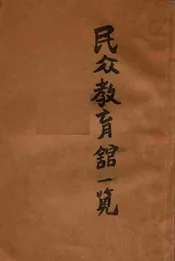 民众教育舘一览